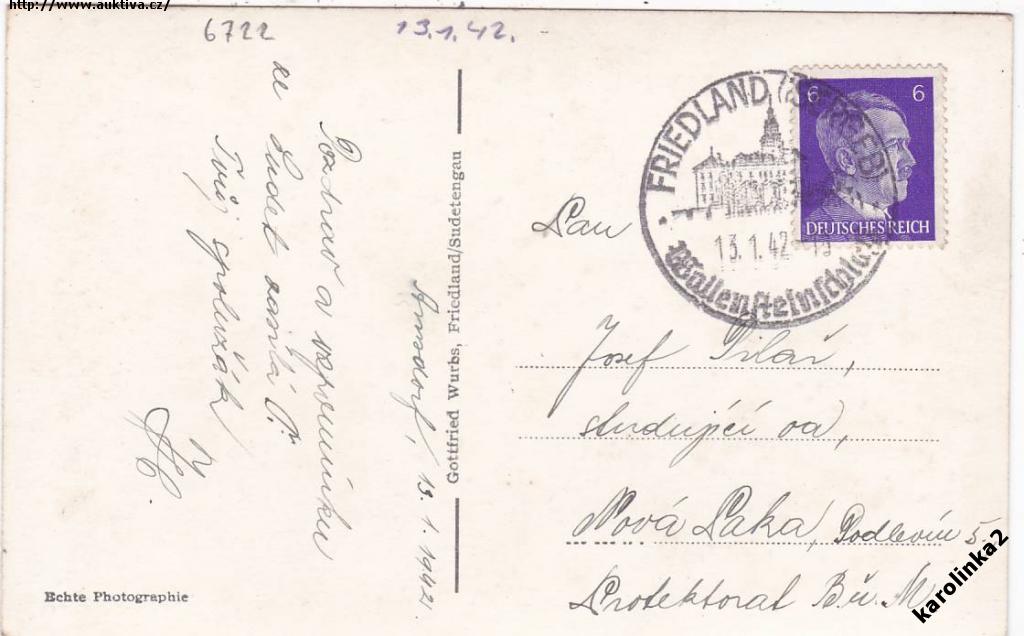 http://www.auktiva.cz/
6722
13.1.42.
Pozdrav a vzpomínku
ze Sudet zasílá Ti
Tvůj spolužák
Arnsdorf, 13.1.1942.
Gottfried Wurbs, Friedland/Sudetengau
Echte Photographie
FRIEDLAND (ISERGEB)
13.1.42
Wallensteinschloß
6 6
DEUTSCHES REICH
Pan
Josef Pilař,
studující oa,
Nová Paka, Podlevín 5.
Protektorat B. u. M.
karolinka2